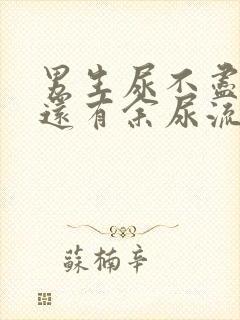 男生尿不盡
還有余尿流
蘇楠辛